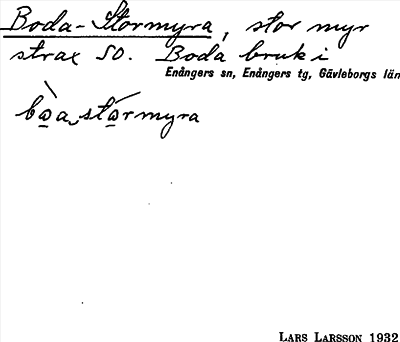 Boda-Stormyra, stor myr
strax SO. Boda bruk i
Enångers sn, Enångers tg, Gävleborgs län
bo̲a sto̲rmyra
LARS LARSSON 1932